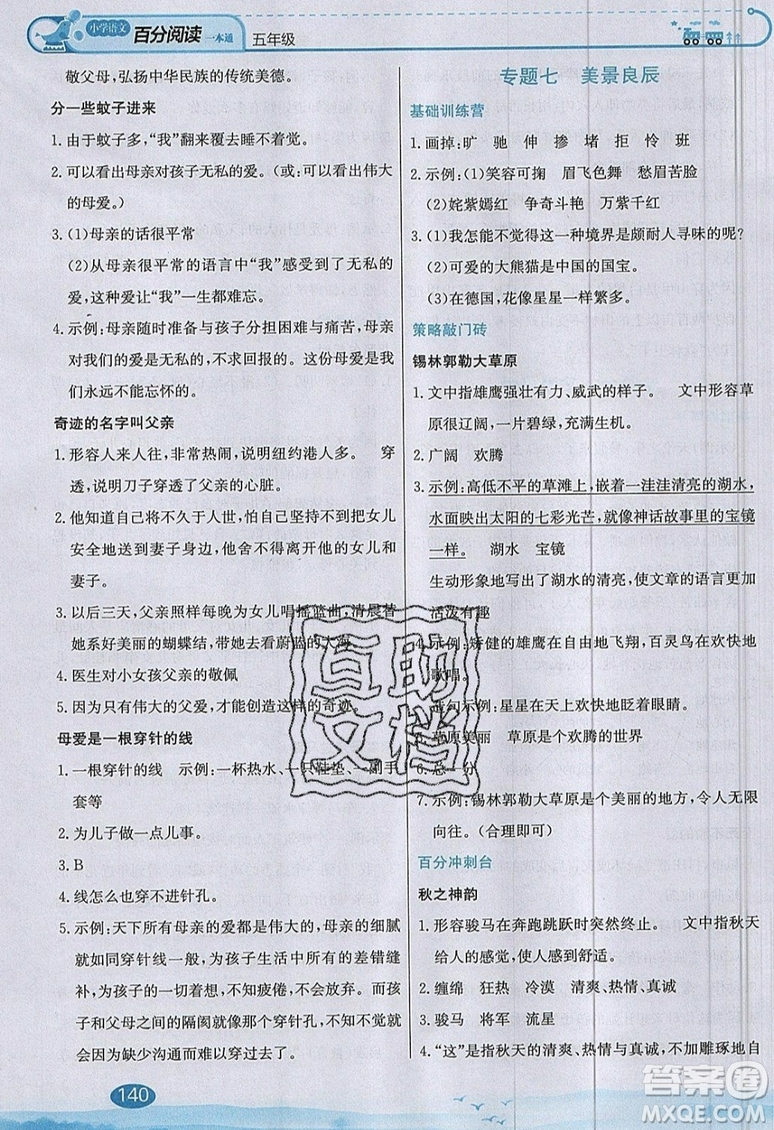 小学语文 百分阅读 一本通 五年级
敬父母，弘扬中华民族的传统美德。
分一些蚊子进来
1. 由于蚊子多，“我”翻来覆去睡不着觉。
2. 可以看出母亲对孩子无私的爱。（或：可以看出伟大
的母爱。）
3. (1)母亲的话很平常
(2)从母亲很平常的语言中“我”感悟到了无私的
爱，这种爱让“我”一生都难忘。
4. 示例：母亲随时准备与孩子分担困难与痛苦，母亲
对我们的爱是无私的，不图回报。这份母爱是我
们永远不能忘怀的。
奇迹的名字叫父亲
1. 形容人来人往，非常热闹，说明纽约港人多。 穿
透，说明刀子穿透了父亲的心脏。
2. 他知道自己将不久于人世，怕自己坚持不到把女儿
安全地送到妻子身边，他舍不得离开他的女儿和
妻子。
3. 以后三天，父亲照旧每晚为女儿唱摇篮曲，清晨替
她系好美丽的蝴蝶结，带她去看蔚蓝的大海
4. 医生对小女孩父亲的敬佩
5. 因为只有伟大的父爱，才能创造这样的奇迹。
母爱是一根穿针的线
1. 一根穿针的线 示例：一杯热水、一只鞋垫、一副手
套等
2. 为儿子做一点儿事。
3. B
4. 线怎么也穿不进针孔。
5. 示例：天下所有的母亲的爱都是伟大的，母亲的细腻
就如同穿针线一般，为孩子的生活仔细地在缝缝
补补，为了孩子，不知疲倦，不会放弃。而孩
子与父母之间的隔阂就像那个穿针孔，里面的线
因为缺少沟通而无法穿过。
140
专题七 美景良辰
基础训练营
1. 画掉：旷 驰 伸 掺 堵 拒 怜 班
2. 示例：(1)笑容可掬 眉飞色舞 愁眉苦脸
(2)姹紫嫣红 争奇斗艳 万紫千红
3. (1)我怎能不觉得这一种境界是颇耐人寻味的呢？
(2)可爱的大熊猫是中国的国宝。
(3)在德国，花像星星一样繁多。
策略敲门砖
锡林郭勒大草原
1. 文中指雄鹰强壮有力、威武的样子。 文中形容草
原很辽阔，一片碧绿，充满生机。
2. 广阔 欢腾
3. 示例：高低不平的草滩上，嵌着一洼洼清亮的湖水，
水面映出太阳的七彩光芒，就像神话故事里的宝镜
一样。 湖水 宝镜
生动形象地写出了湖水的清亮，使文章的语言更加
活泼有趣
4. 示例：矫健的雄鹰在自由地飞翔，百灵鸟在欢快地
歌唱。
造句示例：星星在天上欢快地眨着眼睛。
5. 草原美丽 草原是个欢腾的世界
6. 总—分
7. 示例：锡林郭勒大草原是个美丽的地方，令人无限
向往。（合理即可）
百分冲刺台
秋之神韵
1. 形容骏马在奔跑跳跃时突然终止。 文中指秋天
给人的感觉，使人感到舒适。
2. 缠绵 狂热 冷漠 清爽、热情、真诚
3. 骏马 将军 流星
4. “这”是指秋天的清爽、热情与真诚，不加雕琢地自
互助文档
答案圈
MXQE.COM